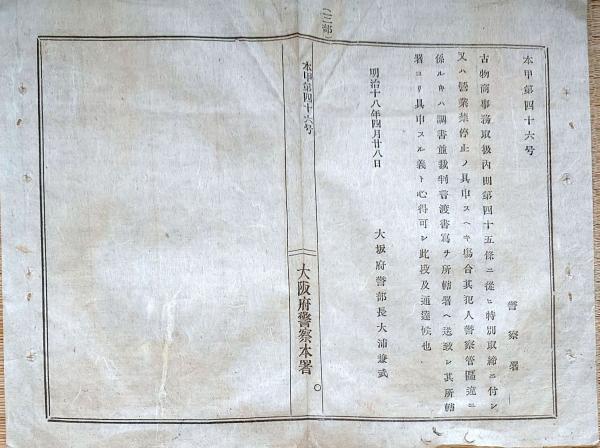 本甲第四十六号
警察署
古物商事務取扱內則第四十五條ニ從ヒ特別取締ニ付シ
又ハ營業禁停止ノ具申スヘキ塲合其犯人警察管區違ニ
係ルキハ調書並裁判言渡書寫ヲ所轄署ヘ送致シ其所轄
署ヨリ具申スル義ト心得可シ此段及通達候也
明治十八年四月廿八日
大坂府警部長大浦兼武
(三部)
本甲第四十六号
大阪府警察本署